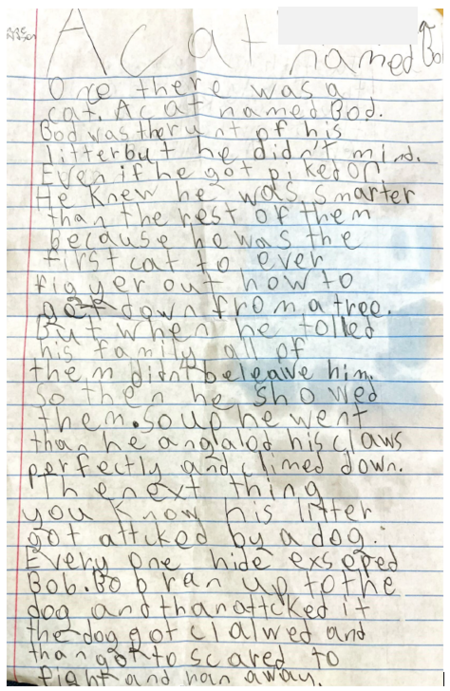 A cat named Bo
One there was a
cat. A cat named Bod.
Bod was the runt of his
litter but he didn't mind.
Even if he got piked on
He knew he was smarter
than the rest of them
because he was the
first cat to ever
figyer out how to
get down from a tree.
But when he tolled
his family all of
them didnt beleaive him.
So then he showed
them. so up he went
than he anglalod his claws
perfectly and climed down.
The next thing
you know his litter
got attcked by a dog.
Every one hide exseped
Bob. Bob ran up to the
dog and than attcked it
the dog got clalwed and
than got to scared to
fight and ran away.